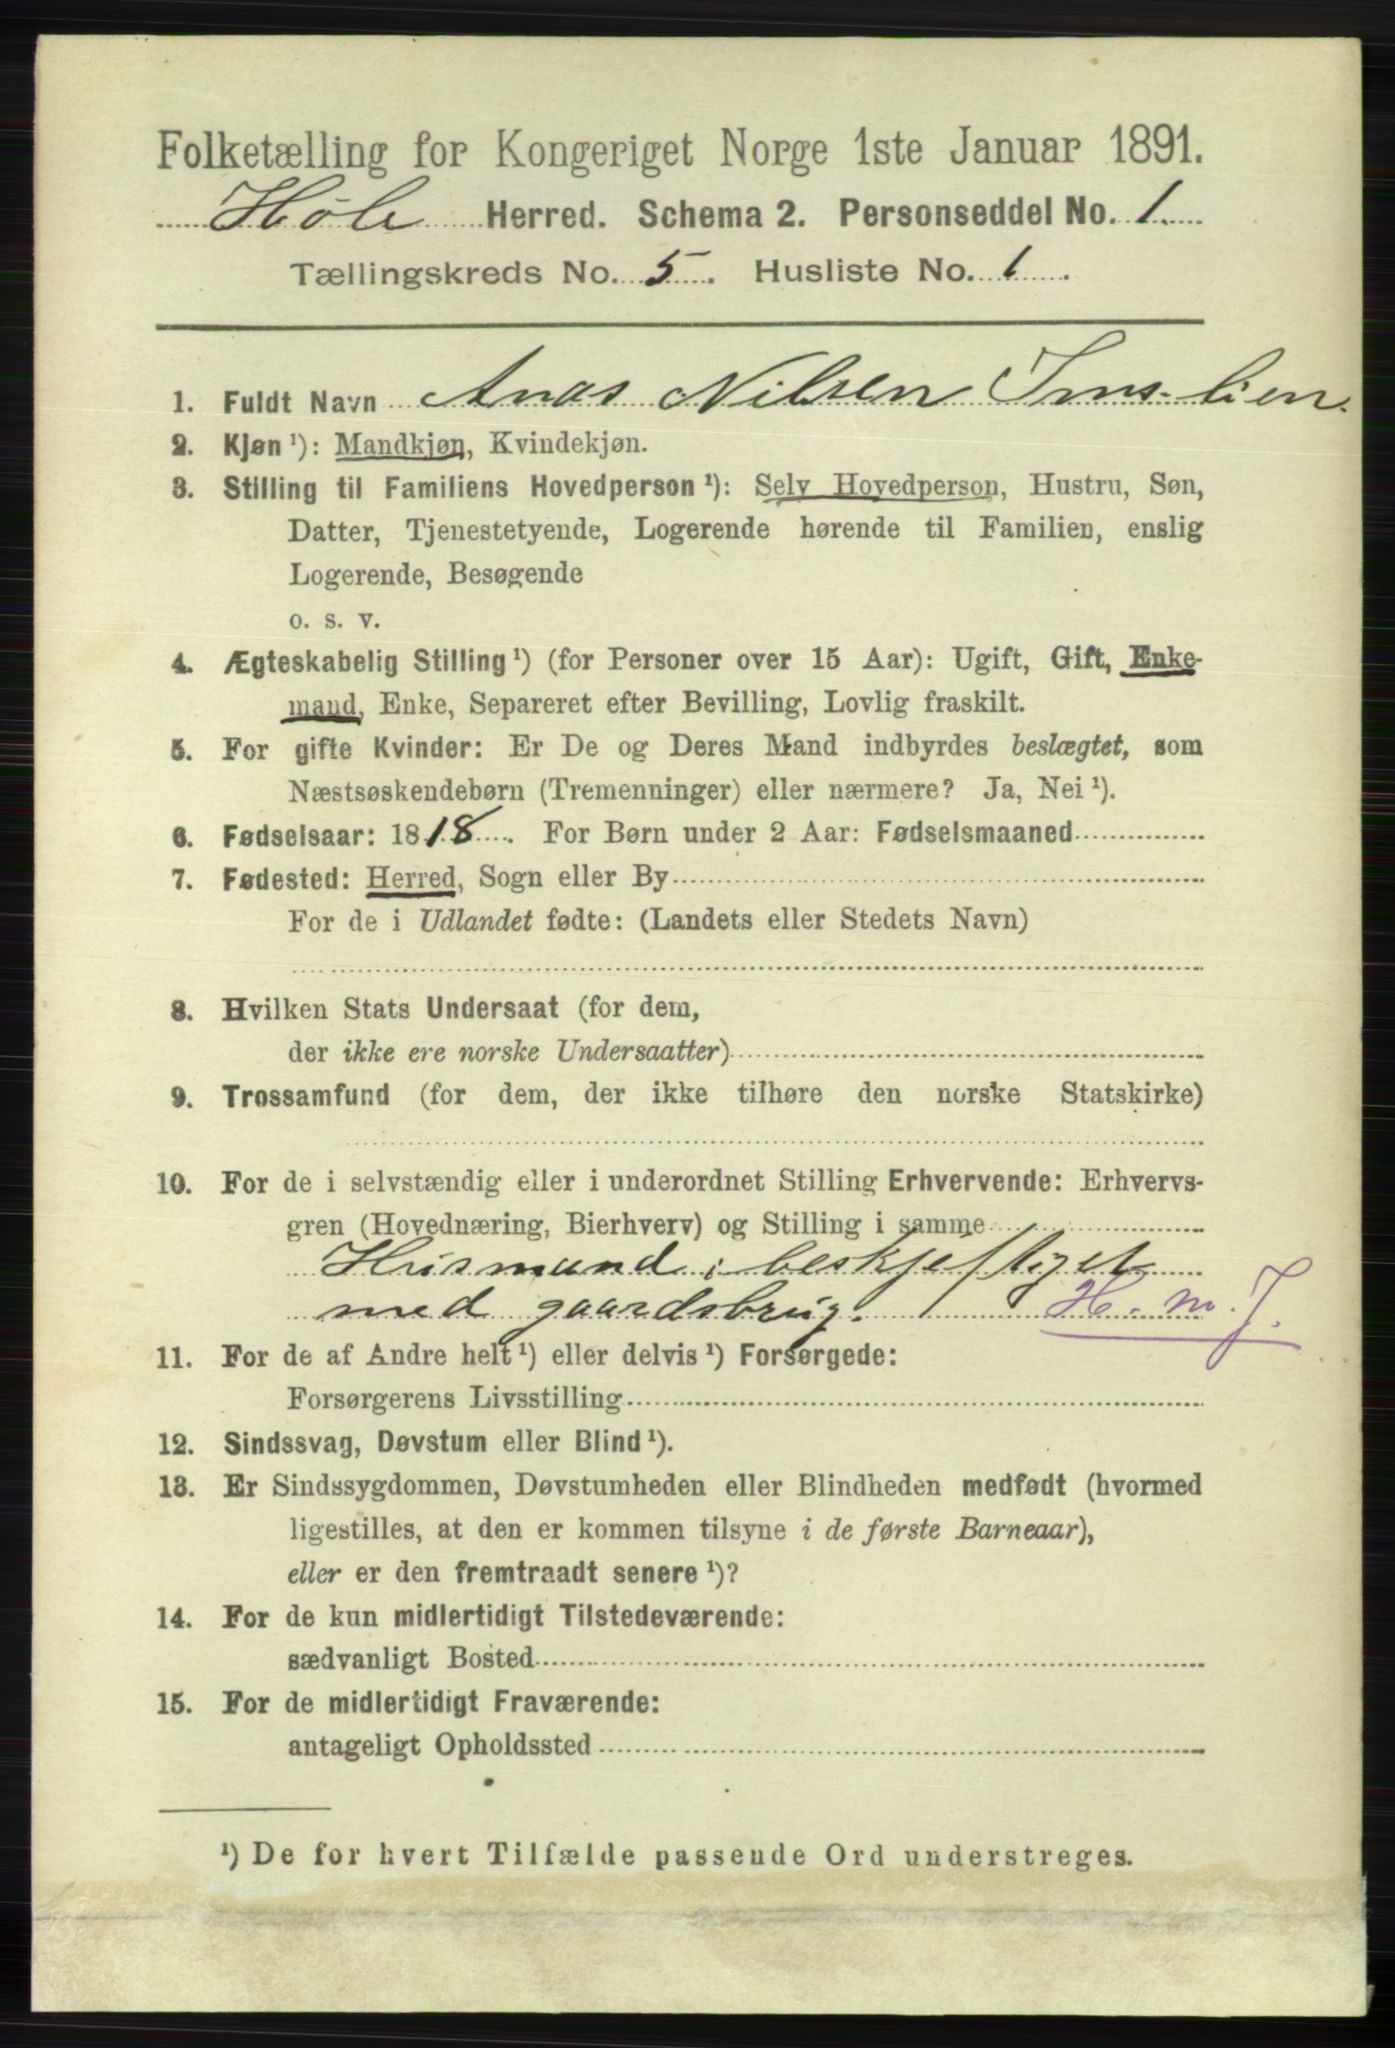 Folketælling for Kongeriget Norge 1ste Januar 1891.
Høle Herred. Schema 2. Personseddel No. 1.
Tællingskreds No. 5. Husliste No. 1.
1. Fuldt Navn Anas Nilsen Ims-lien.
2. Kjøn ¹): Mandkjøn, Kvindekjøn.
3. Stilling til Familiens Hovedperson ¹): Selv Hovedperson, Hustru, Søn,
Datter, Tjenestetyende, Logerende hørende til Familien, enslig
Logerende, Besøgende
o. s. v.
4. Ægteskabelig Stilling ¹) (for Personer over 15 Aar): Ugift, Gift, Enke-
mand, Enke, Separeret efter Bevilling, Lovlig fraskilt.
5. For gifte Kvinder: Er De og Deres Mand indbyrdes beslægtet, som
Næstsøskendebørn (Tremenninger) eller nærmere? Ja, Nei ¹).
6. Fødselsaar: 1818. For Børn under 2 Aar: Fødselsmaaned
7. Fødested: Herred, Sogn eller By
For de i Udlandet fødte: (Landets eller Stedets Navn)
8. Hvilken Stats Undersaat (for dem,
der ikke ere norske Undersaatter)
9. Trossamfund (for dem, der ikke tilhøre den norske Statskirke)
10. For de i selvstændig eller i underordnet Stilling Erhvervende: Erhvervs-
gren (Hovednæring, Bierhverv) og Stilling i samme
Husmand; beskjeftiget
med gaardsbrug. H. m. J.
11. For de af Andre helt ¹) eller delvis ¹) Forsørgede:
Forsørgerens Livsstilling
12. Sindssvag, Døvstum eller Blind ¹).
13. Er Sindssygdommen, Døvstumheden eller Blindheden medfødt (hvormed
ligestilles, at den er kommen tilsyne i de første Barneaar),
eller er den fremtraadt senere ¹)?
14. For de kun midlertidigt Tilstedeværende:
sædvanligt Bosted
15. For de midlertidigt Fraværende:
antageligt Opholdssted
¹) De for hvert Tilfælde passende Ord understreges.